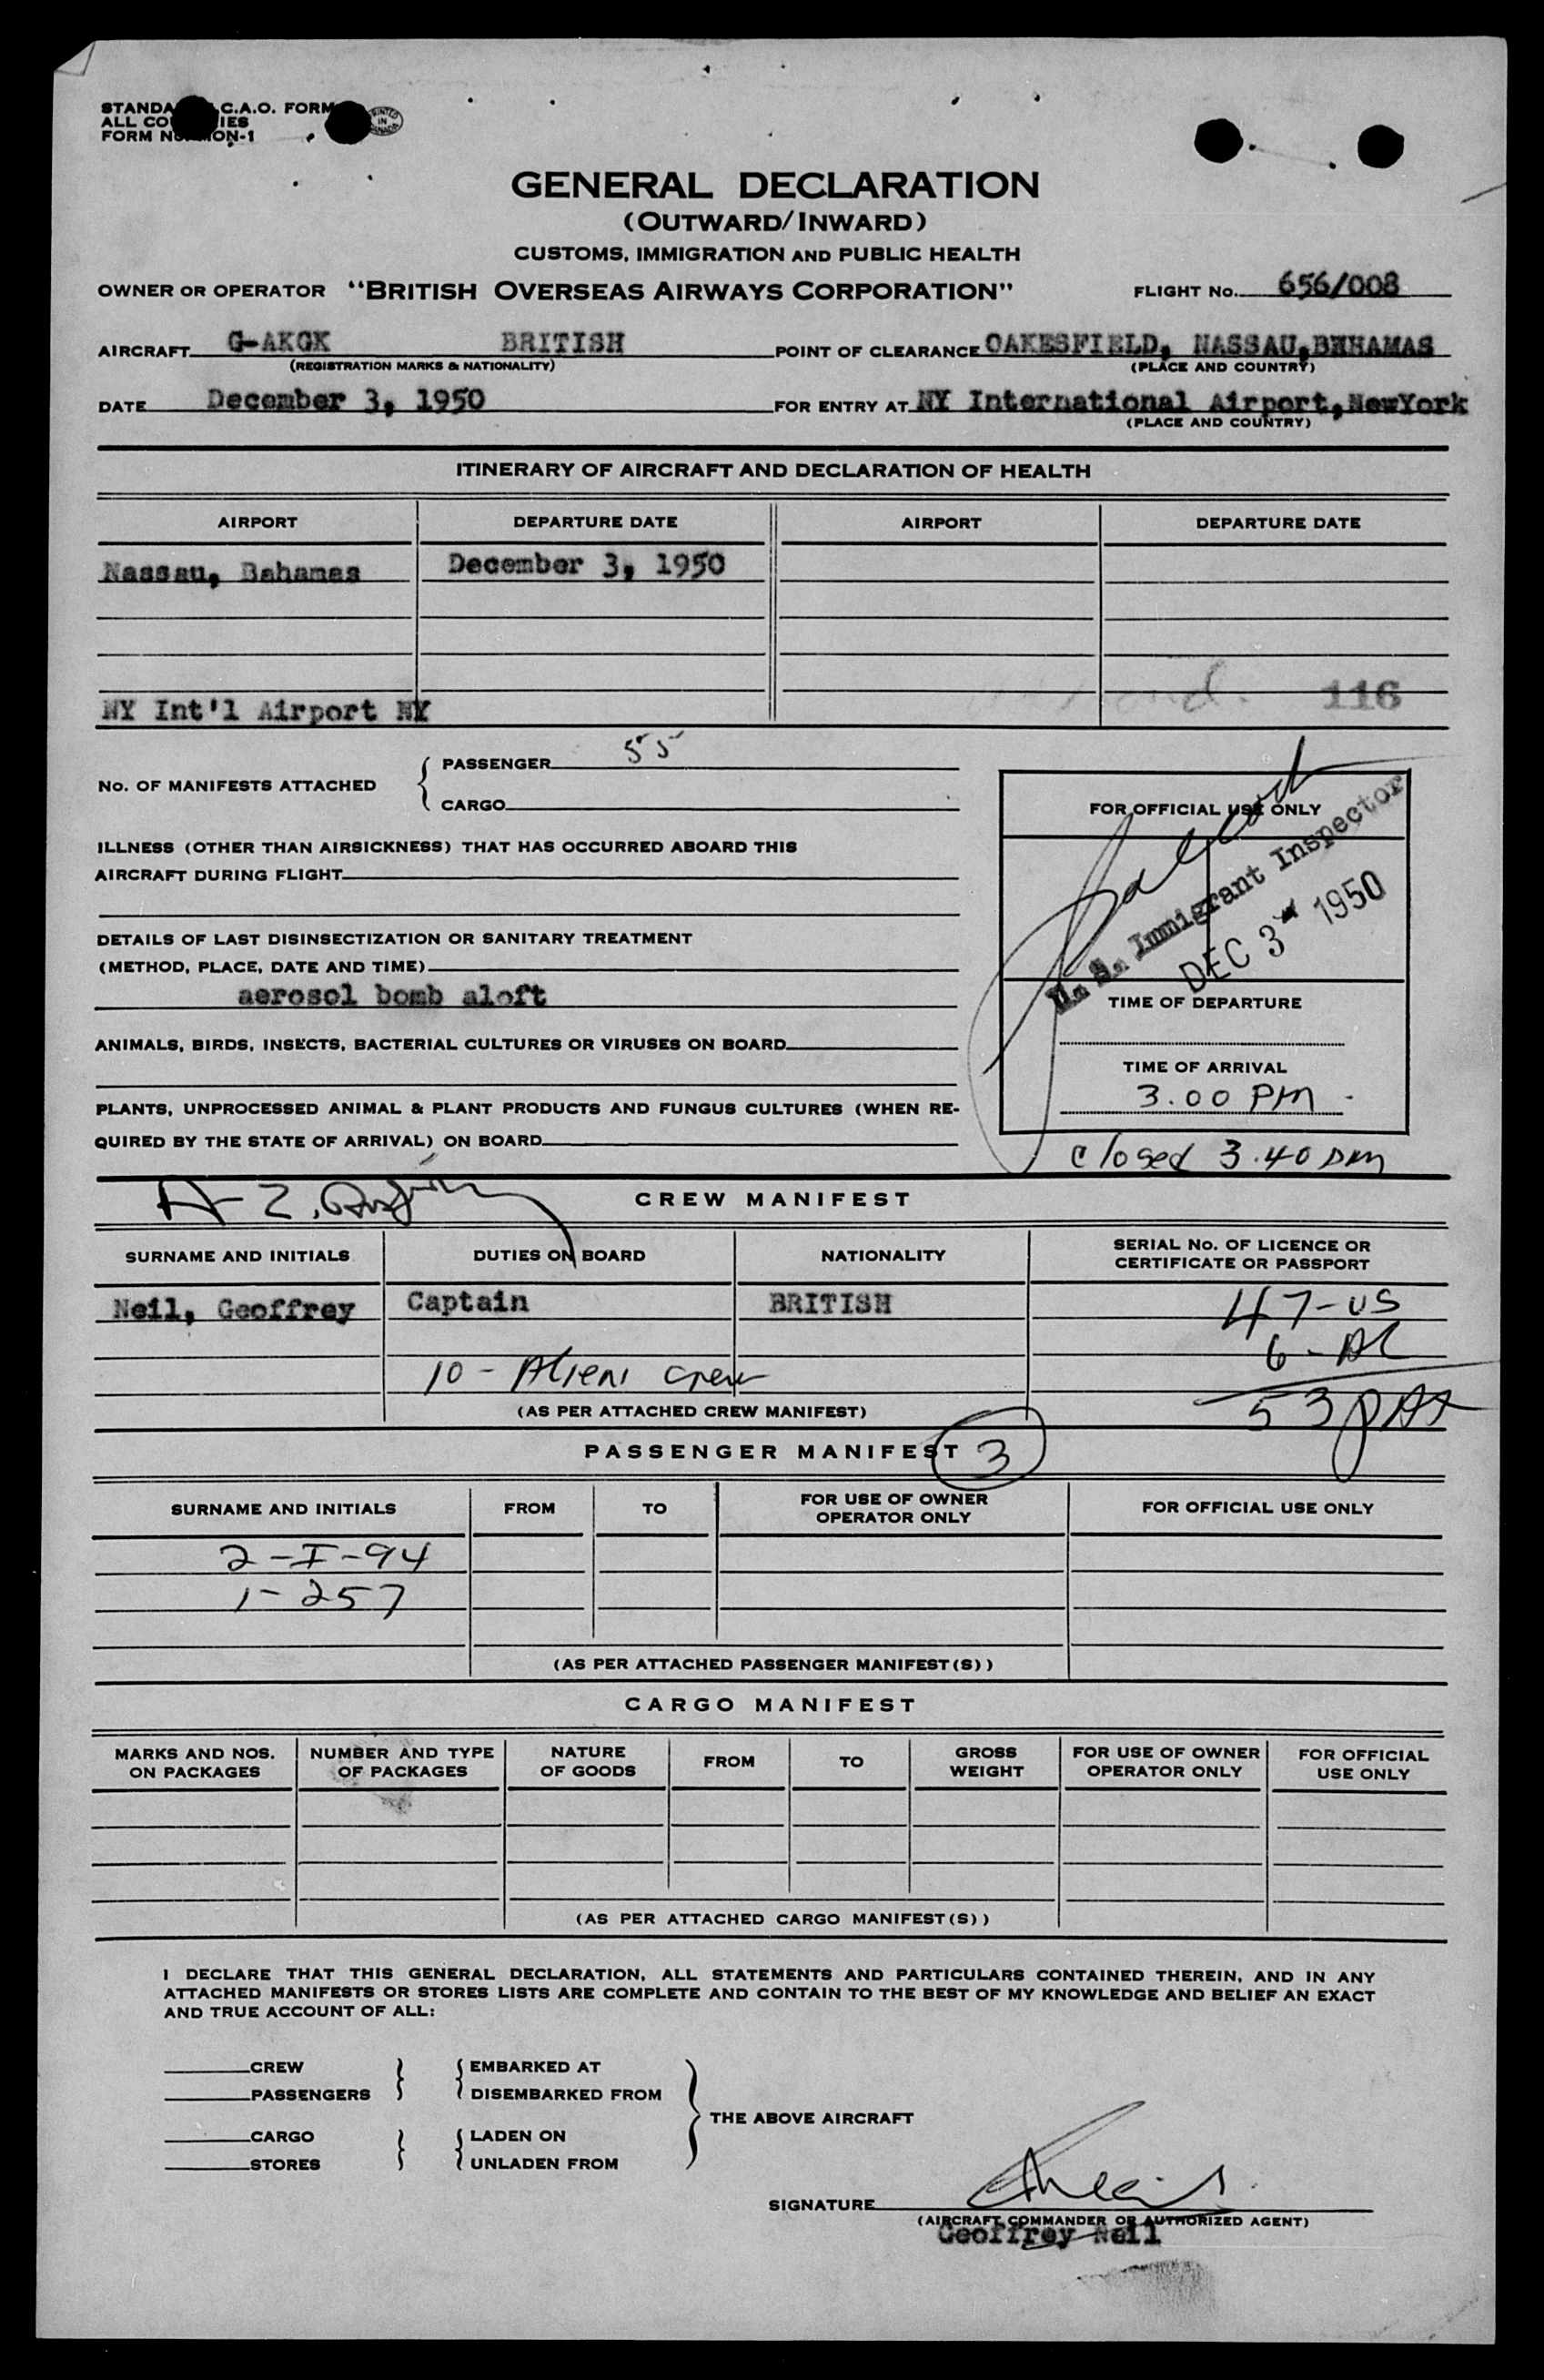 STANDA C.A.O. FORM
ALL CO IES
FORM N ON-1
PRINTED IN CANADA
GENERAL DECLARATION
(OUTWARD/INWARD)
CUSTOMS, IMMIGRATION AND PUBLIC HEALTH
OWNER OR OPERATOR "BRITISH OVERSEAS AIRWAYS CORPORATION" FLIGHT No. 656/008
AIRCRAFT G-AKGK BRITISH POINT OF CLEARANCE OAKESFIELD, NASSAU, BEHAMAS
(REGISTRATION MARKS & NATIONALITY) (PLACE AND COUNTRY)
DATE December 3, 1950 FOR ENTRY AT NY International Airport, NewYork
(PLACE AND COUNTRY)
ITINERARY OF AIRCRAFT AND DECLARATION OF HEALTH
AIRPORT DEPARTURE DATE AIRPORT DEPARTURE DATE
Nassau, Bahamas December 3, 1950
116
NY Int'l Airport NY
PASSENGER 55
No. OF MANIFESTS ATTACHED
CARGO
FOR OFFICIAL USE ONLY
ILLNESS (OTHER THAN AIRSICKNESS) THAT HAS OCCURRED ABOARD THIS
AIRCRAFT DURING FLIGHT
U. S. Immigrant Inspector
DEC 3 1950
DETAILS OF LAST DISINSECTIZATION OR SANITARY TREATMENT
(METHOD, PLACE, DATE AND TIME)
aerosol bomb aloft
TIME OF DEPARTURE
ANIMALS, BIRDS, INSECTS, BACTERIAL CULTURES OR VIRUSES ON BOARD
TIME OF ARRIVAL
3.00 PM
PLANTS, UNPROCESSED ANIMAL & PLANT PRODUCTS AND FUNGUS CULTURES (WHEN RE-
QUIRED BY THE STATE OF ARRIVAL) ON BOARD
closed 3.40 pm
CREW MANIFEST
SURNAME AND INITIALS DUTIES ON BOARD NATIONALITY SERIAL No. OF LICENCE OR
CERTIFICATE OR PASSPORT
Neil, Geoffrey Captain BRITISH 47-US
6-AL
10 - Alien crew
53 pax
(AS PER ATTACHED CREW MANIFEST)
PASSENGER MANIFEST 3
SURNAME AND INITIALS FROM TO FOR USE OF OWNER
OPERATOR ONLY FOR OFFICIAL USE ONLY
2-I-94
1-257
(AS PER ATTACHED PASSENGER MANIFEST(S))
CARGO MANIFEST
MARKS AND NOS.
ON PACKAGES NUMBER AND TYPE
OF PACKAGES NATURE
OF GOODS FROM TO GROSS
WEIGHT FOR USE OF OWNER
OPERATOR ONLY FOR OFFICIAL
USE ONLY
(AS PER ATTACHED CARGO MANIFEST(S))
I DECLARE THAT THIS GENERAL DECLARATION, ALL STATEMENTS AND PARTICULARS CONTAINED THEREIN, AND IN ANY
ATTACHED MANIFESTS OR STORES LISTS ARE COMPLETE AND CONTAIN TO THE BEST OF MY KNOWLEDGE AND BELIEF AN EXACT
AND TRUE ACCOUNT OF ALL:
CREW EMBARKED AT
PASSENGERS DISEMBARKED FROM
THE ABOVE AIRCRAFT
CARGO LADEN ON
STORES UNLADEN FROM
SIGNATURE
(AIRCRAFT COMMANDER OR AUTHORIZED AGENT)
Geoffrey Neil